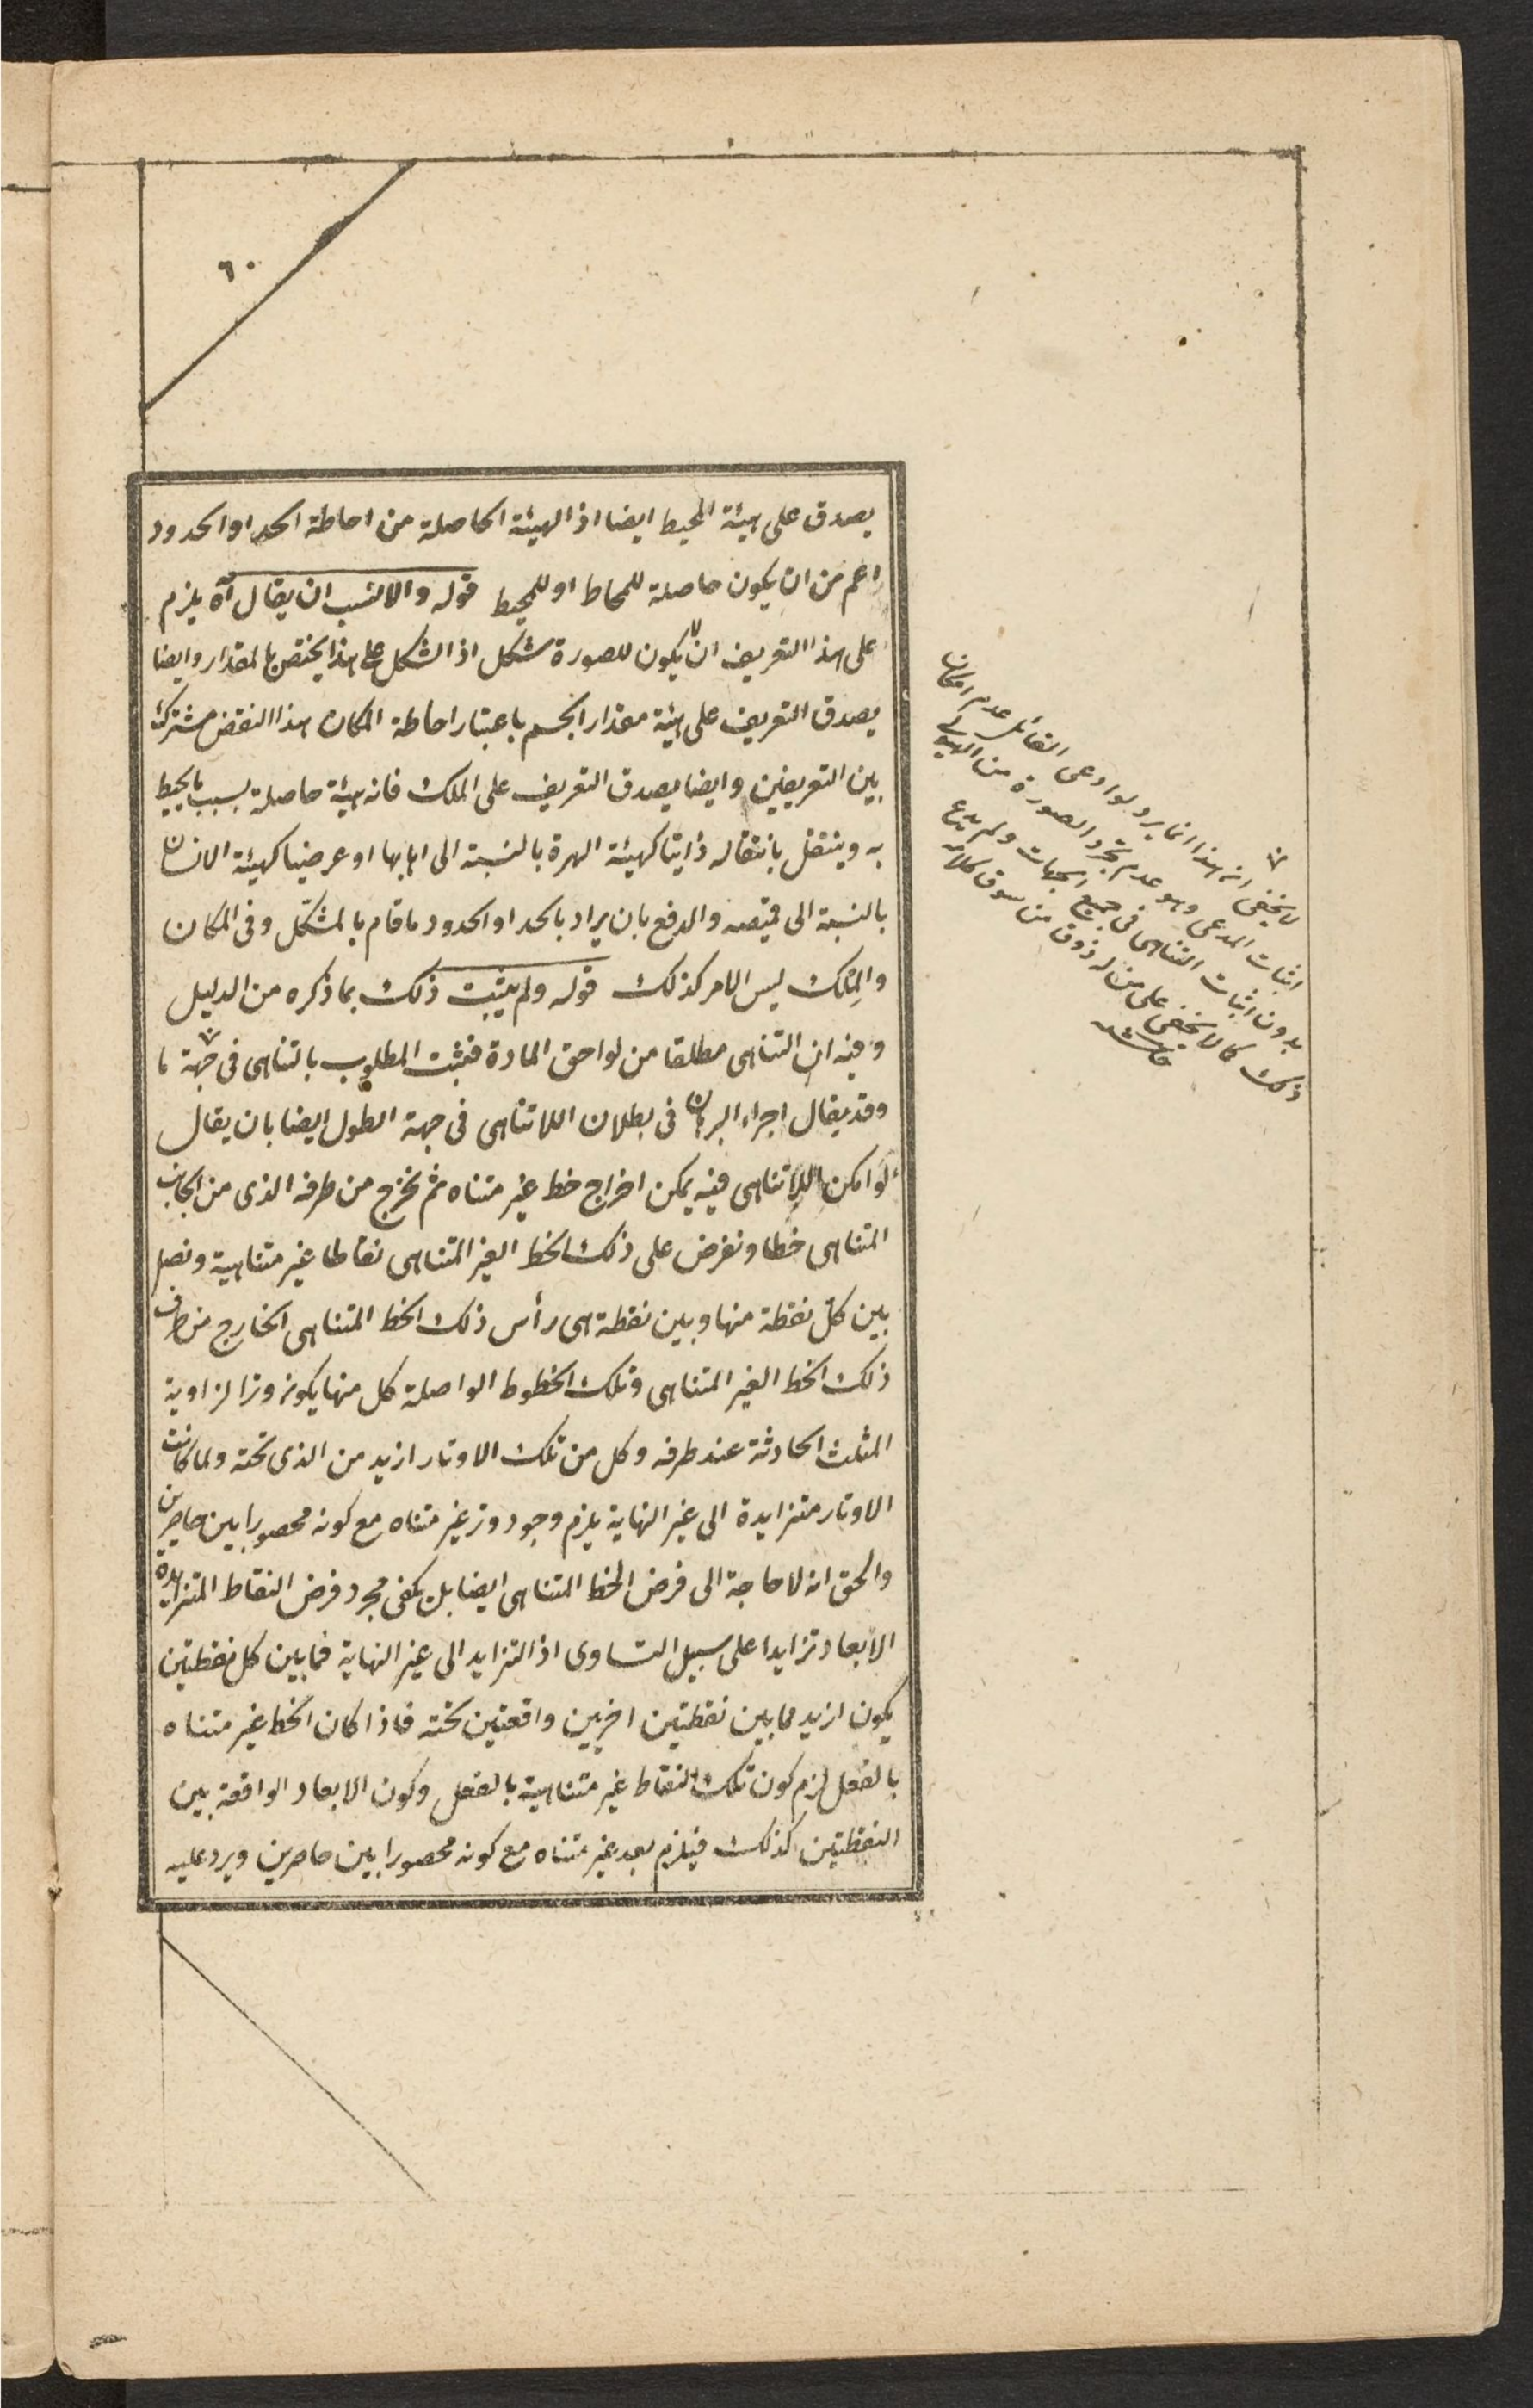 ٦٠
يصدق على هيئة المحيط ايضا اذ الهيئة الحاصلة من احاطة الحد او الحدود
اعم من ان يكون حاصلة للمحاط او للمحيط قوله والانسب ان يقال آه يلزم
على هذا التعريف ان لا يكون للصورة شكل اذ الشكل على هذا يختص بالمقدار وايضا
يصدق التعريف على هيئة مقدار الجسم باعتبار احاطة المكان هذا النقض مشترك
بين التعريفين وايضا يصدق التعريف على الملك فانه هيئة حاصلة بسبب ما يحيط
به وينتقل بانتقاله ذاتيا كهيئة الهرة بالنسبة الى اهابها او عرضيا كهيئة الانسان
بالنسبة الى قميصه والدفع بان يراد بالحد او الحدود ما قام بالمشكل وفى المكان
والمِلك ليس الامر كذلك قوله ولم يثبت ذلك بما ذكره من الدليل
وفيه ان التناهى مطلقا من لواحق المادة فيثبت المطلوب بالتناهى فى جهة ما
وقد يقال اجراء البرهان فى بطلان اللاتناهى فى جهة الطول ايضا بان يقال
لو امكن اللاتناهى فيه يمكن اخراج خط غير متناه ثم نخرج من طرفه الذى من الجانب
المتناهى خطا ونفرض على ذلك الخط الغير المتناهى نقاطا غير متناهية ونصل
بين كل نقطة منها وبين نقطة هى رأس ذلك الخط المتناهى الخارج من طرف
ذلك الخط الغير المتناهى وتلك الخطوط الواصلة كل منها يكون وترا لزاوية
المثلث الحادثة عند طرفه وكل من تلك الاوتار ازيد من الذى تحته ولما كانت
الاوتار متزايدة الى غير النهاية يلزم وجود وتر غير متناه مع كونه محصورا بين حاصرين
والحق انه لا حاجة الى فرض الخط المتناهى ايضا بل يكفى مجرد فرض النقاط المتزايدة
الابعاد تزايدا على سبيل التساوى اذ التزايد الى غير النهاية فما بين كل نقطتين
يكون ازيد مما بين نقطتين اخريين واقعتين تحته فاذا كان الخط غير متناه
بالفعل لزم كون تلك النقاط غير متناهية بالفعل وكون الابعاد الواقعة بين
النقطتين كذلك فيلزم بعد غير متناه مع كونه محصورا بين حاصرين ويرد عليه
لا يخفى ان هذا انما يرد لو ادعى القائل عدم امكان
اثبات المدعى وهو عدم تجرد الصورة من الهيولى
بدون اثبات التناهى فى جميع الجهات ولم يدع
ذلك كما لا يخفى على من له ذوق من سوق كلامه